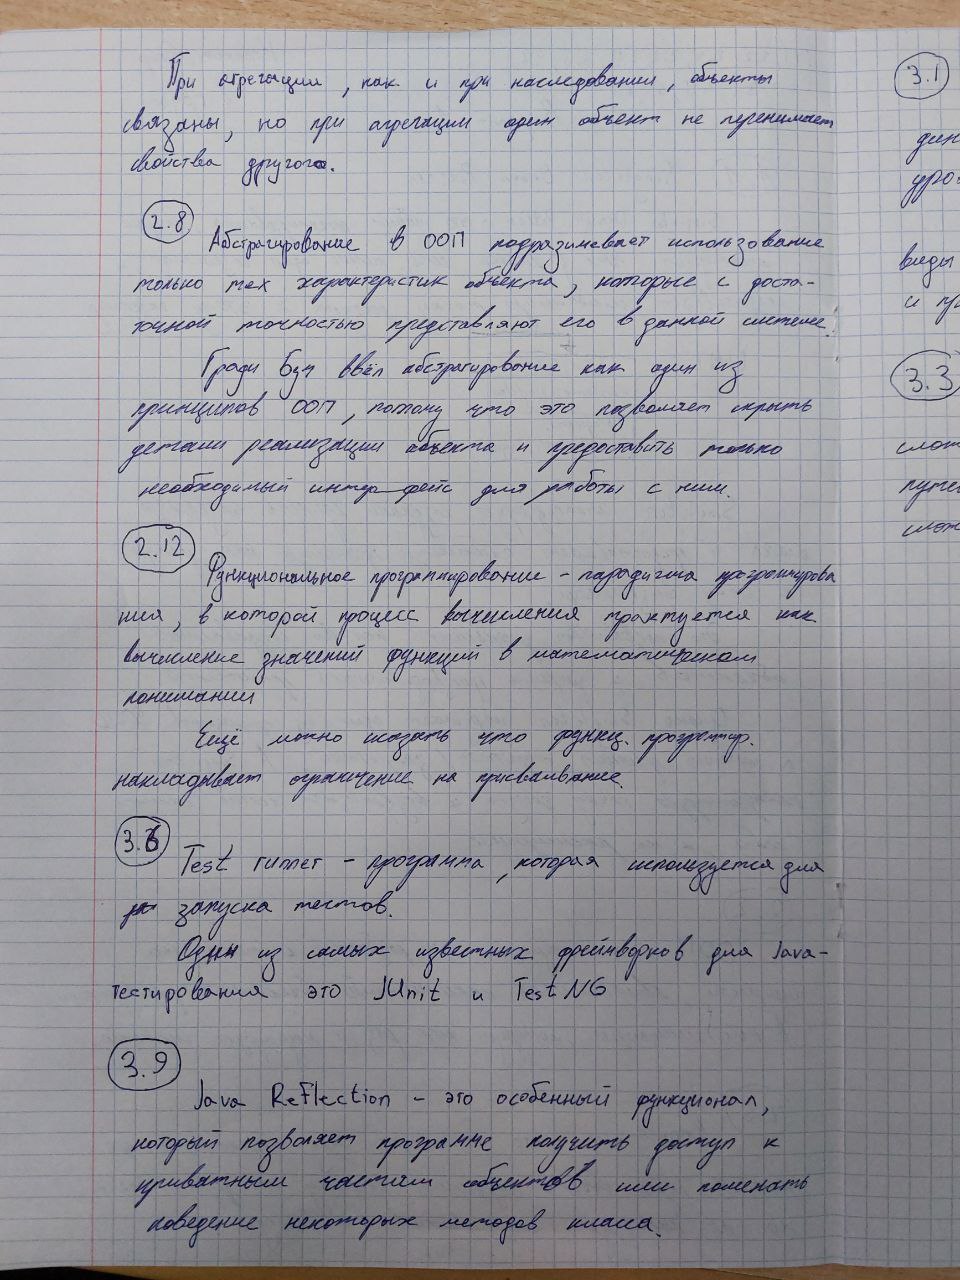 При агрегации, как и при наследовании, объекты
связаны, но при агрегации один объект не перенимает
свойства другого.
2.8
Абстрагирование в ООП подразумевает использование
только тех характеристик объекта, которые с доста-
точной точностью представляют его в данной системе.
Гради Буч ввёл абстрагирование как один из
принципов ООП, потому что это позволяет скрыть
детали реализации объекта и предоставить только
необходимый интерфейс для работы с ним.
2.12
Функциональное программирование - парадигма программирова
ния, в которой процесс вычисления трактуется как
вычисление значений функций в математическом
понимании
Ещё можно сказать что функц. програмир.
накладывает ограничение на присваивание.
3.6
Test runner - программа, которая используется для
запуска тестов.
Один из самых известных фреймворков для Java-
тестирования это JUnit и TestNG
3.9
Java Reflection - это особенный функционал,
который позволяет программе получить доступ к
приватным частям объектов или поменять
поведение некоторых методов класса.
3.1
виды
3.3